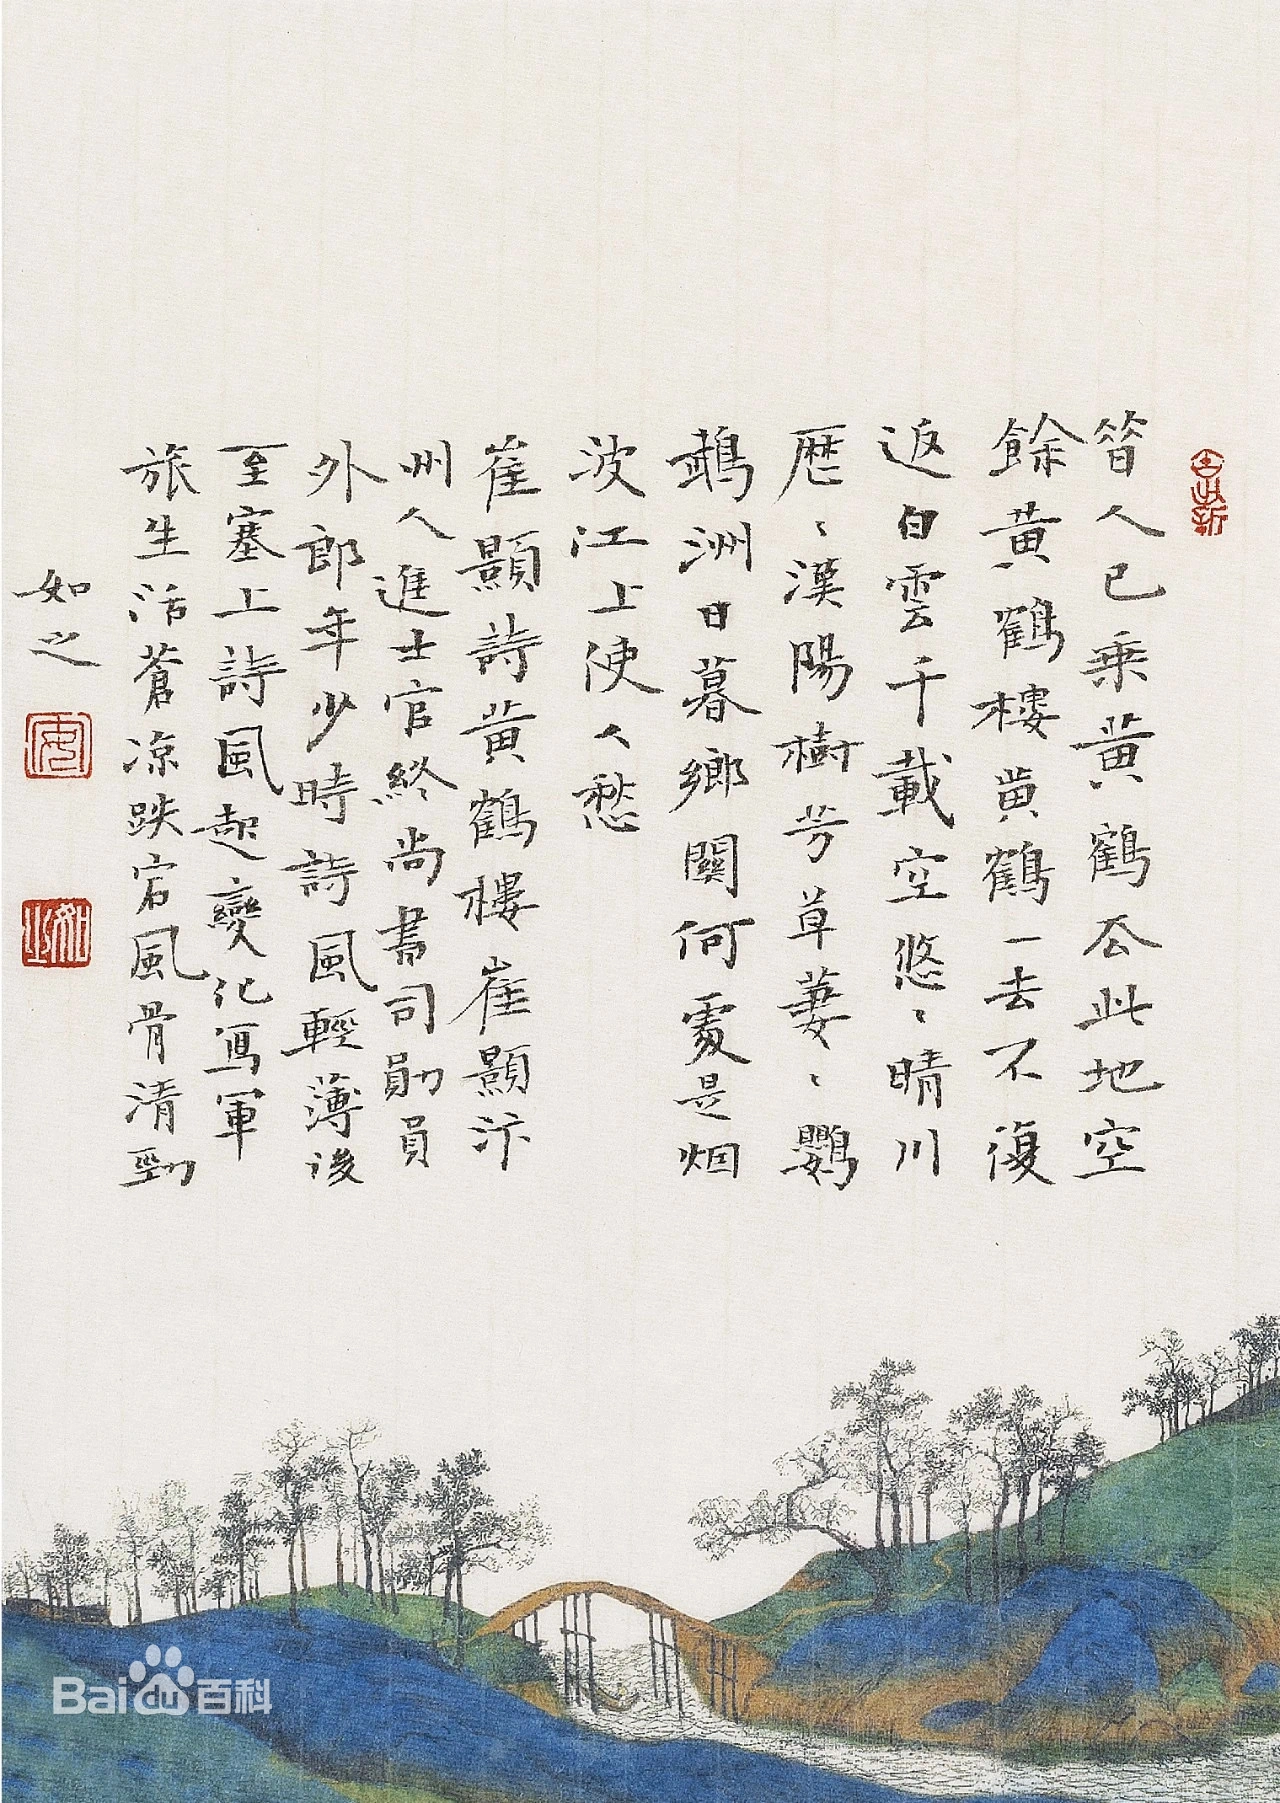 昔人已乘黄鶴去此地空
餘黄鶴樓黄鶴一去不復
返白雲千載空悠〻晴川
歷〻漢陽樹芳草萋〻鸚
鵡洲日暮鄉關何處是烟
波江上使人愁
崔顥詩黄鶴樓崔顥汴
州人進士官終尚書司勛員
外郎年少時詩風輕薄後
至塞上詩風起變化寫軍
旅生活蒼凉跌宕風骨清勁
如之
如之
Baidu百科